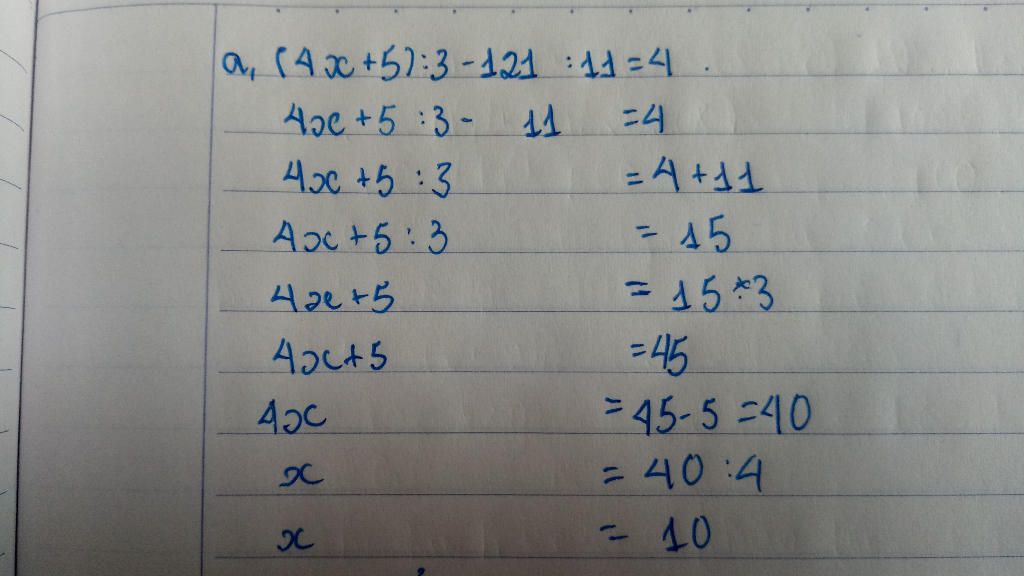 a, (4x+5):3-121 :11=4.
4x+5 :3- 11 =4
4x+5 :3 =4+11
4x+5:3 = 15
4x+5 = 15*3
4x+5 =45
4x =45-5 =40
x = 40 :4
x = 10